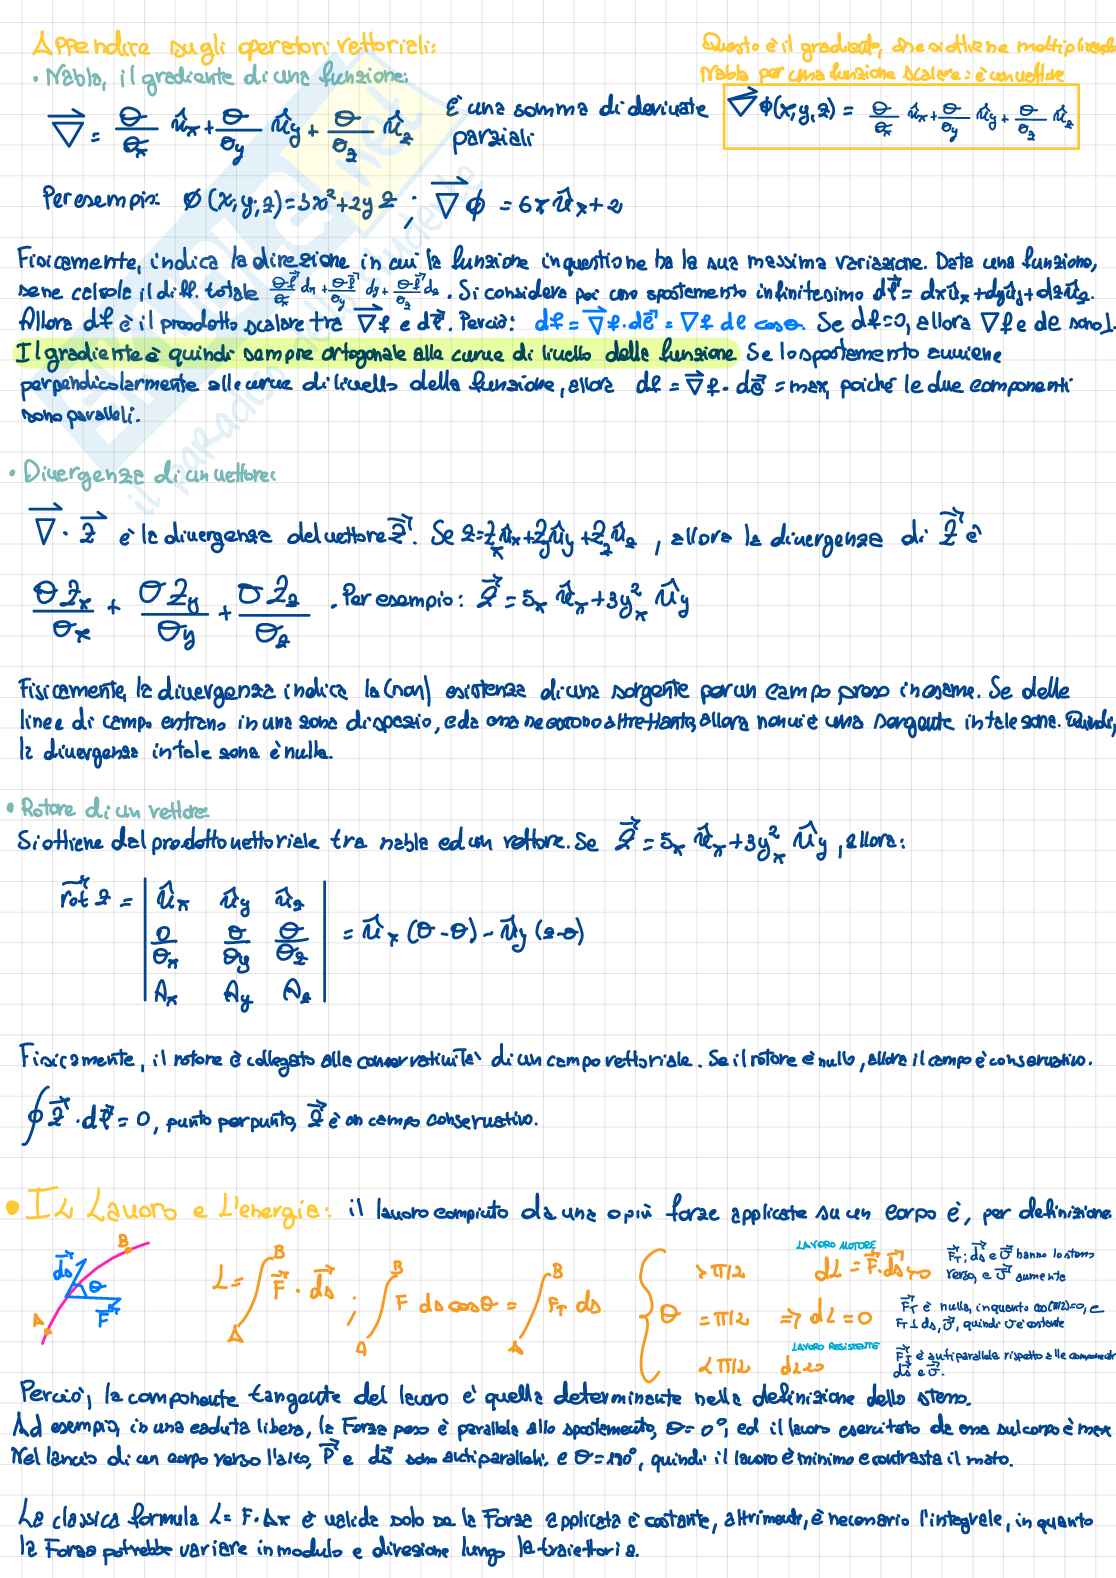 Appendice sugli operatori vettoriali:
Questo è il gradiente, che si ottiene moltiplicando
Nabla per una funzione scalare: è un vettore
• Nabla, il gradiente di una funzione:
∇⃗ = ∂/∂x û_x + ∂/∂y û_y + ∂/∂z û_z
È una somma di derivate
parziali
∇⃗ϕ(x,y,z) = ∂/∂x û_x + ∂/∂y û_y + ∂/∂z û_z
Per esempio: ϕ(x,y,z)=3x²+2y z ; ∇⃗ϕ = 6x û_x+2
Fisicamente, indica la direzione in cui la funzione in questione ha la sua massima variazione. Data una funzione,
sene calcola il diff. totale ∂f/∂x dx + ∂f/∂y dy + ∂f/∂z dz. Si considera poi uno spostamento infinitesimo dℓ⃗ = dxû_x+dyû_y+dzû_z.
Allora df è il proodotto scalare tra ∇⃗f e dℓ⃗. Perciò: df = ∇⃗f·dℓ⃗ = ∇f dℓ cosθ. Se df=0, allora ∇f e dℓ sono ⊥.
Il gradiente è quindi sempre ortogonale alla curve di livello della funzione Se lo spostamento avviene
perpendicolarmente alle curve di livello della funzione, allora df = ∇⃗f · dℓ⃗ = max, poiché le due componenti
sono paralleli.
• Divergenza di un vettore:
∇⃗ · Z⃗ è la divergenza del vettore Z⃗. Se Z=Z_xû_x+Z_yû_y+Z_zû_z, allora la divergenza di Z⃗ è
∂Z_x/∂x + ∂Z_y/∂y + ∂Z_z/∂z . Per esempio: Z⃗ = 5x û_x+3y²x û_y
Fisicamente, la divergenza indica la (non) esistenza di una sorgente per un campo preso in esame. Se delle
linee di campo entrano in una zona di spazio, e da essa ne escono altrettante, allora non vi è una sorgente in tale zona. Quindi,
la divergenza in tale zona è nulla.
• Rotore di un vettore
Si ottiene dal prodotto vettoriale tra nabla ed un vettore. Se Z⃗ = 5x û_x+3y²x û_y, allora:
rot⃗ Z = | û_x û_y û_z |
| ∂/∂x ∂/∂y ∂/∂z | = û_x (0-0) - û_y (0-0)
| A_x A_y A_z |
Fisicamente, il rotore è collegato alla conservatività di un campo vettoriale. Se il rotore è nullo, allora il campo è conservativo.
∮ Z⃗ · dℓ⃗ = 0, punto per punto, Z⃗ è un campo conservativo.
• IL Lavoro e L'energia: il lavoro compiuto da una o più forze applicate su un corpo è, per definizione
A B ds⃗ θ F⃗
L = ∫_A^B F⃗ · ds⃗ ; ∫_A^B F ds cosθ = ∫_A^B F_T ds
LAVORO MOTORE
θ { > π/2 dL = F⃗·ds⃗ > 0
F⃗_T; ds⃗ e v⃗ hanno lo stesso
verso, e v⃗ aumenta
= π/2 => dL = 0
F⃗_T è nulla, in quanto cos(π/2)=0, e
F_T ⊥ ds, v⃗, quindi v è costante
LAVORO RESISTENTE
< π/2 dL<0
F⃗_T è antiparallela rispetto alle componenti
ds⃗ e v⃗.
Perciò, la componente tangente del lavoro è quella determinante nella definizione dello stesso.
Ad esempio, in una caduta libera, la Forza peso è parallela allo spostamento, θ= 0°, ed il lavoro esercitato da essa sul corpo è max
Nel lancio di un corpo verso l'alto, P⃗ e ds⃗ sono antiparalleli, e θ=180°, quindi il lavoro è minimo e contrasta il moto.
La classica formula L= F·Δx è valida solo se la Forza applicata è costante, altrimenti, è necessario l'integrale, in quanto
la Forza potrebbe variare in modulo e direzione lungo la traiettoria.